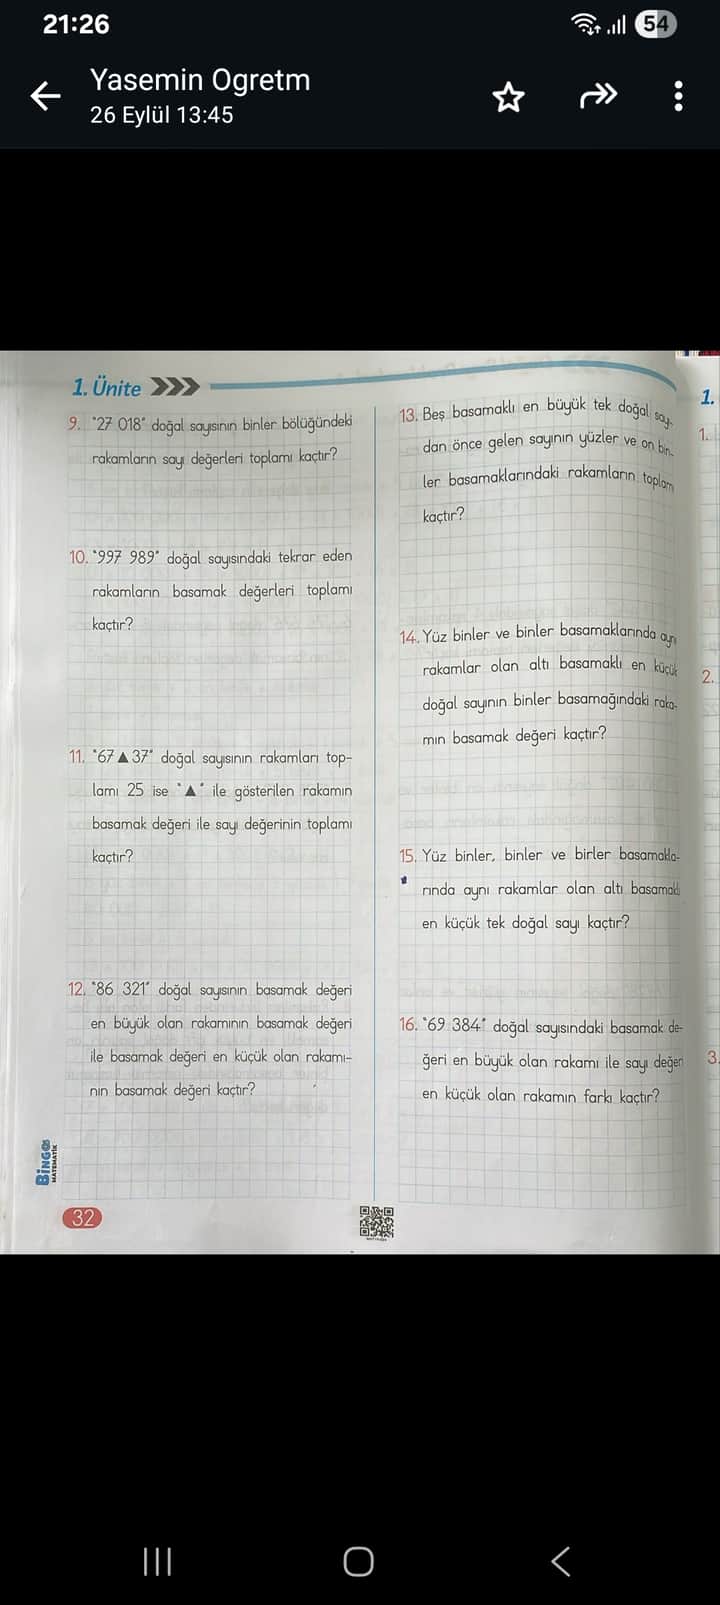 21:26
54
Yasemin Ogretm
26 Eylül 13:45
1. Ünite
9. "27 018" doğal sayısının binler bölüğündeki
rakamların sayı değerleri toplamı kaçtır?
10. "997 989" doğal sayısındaki tekrar eden
rakamların basamak değerleri toplamı
kaçtır?
11. "67▲37" doğal sayısının rakamları top-
lamı 25 ise "▲" ile gösterilen rakamın
basamak değeri ile sayı değerinin toplamı
kaçtır?
12. "86 321" doğal sayısının basamak değeri
en büyük olan rakamının basamak değeri
ile basamak değeri en küçük olan rakamı-
nın basamak değeri kaçtır?
BİNGO
MATEMATİK
32
13. Beş basamaklı en büyük tek doğal sayı-
dan önce gelen sayının yüzler ve on bin-
ler basamaklarındaki rakamların toplam
kaçtır?
14. Yüz binler ve binler basamaklarında aynı
rakamlar olan altı basamaklı en küçük
doğal sayının binler basamağındaki raka-
mın basamak değeri kaçtır?
15. Yüz binler, binler ve birler basamakla-
rında aynı rakamlar olan altı basamaklı
en küçük tek doğal sayı kaçtır?
16. "69 384" doğal sayısındaki basamak de-
ğeri en büyük olan rakamı ile sayı değeri
en küçük olan rakamın farkı kaçtır?
1.
1.
2.
3.